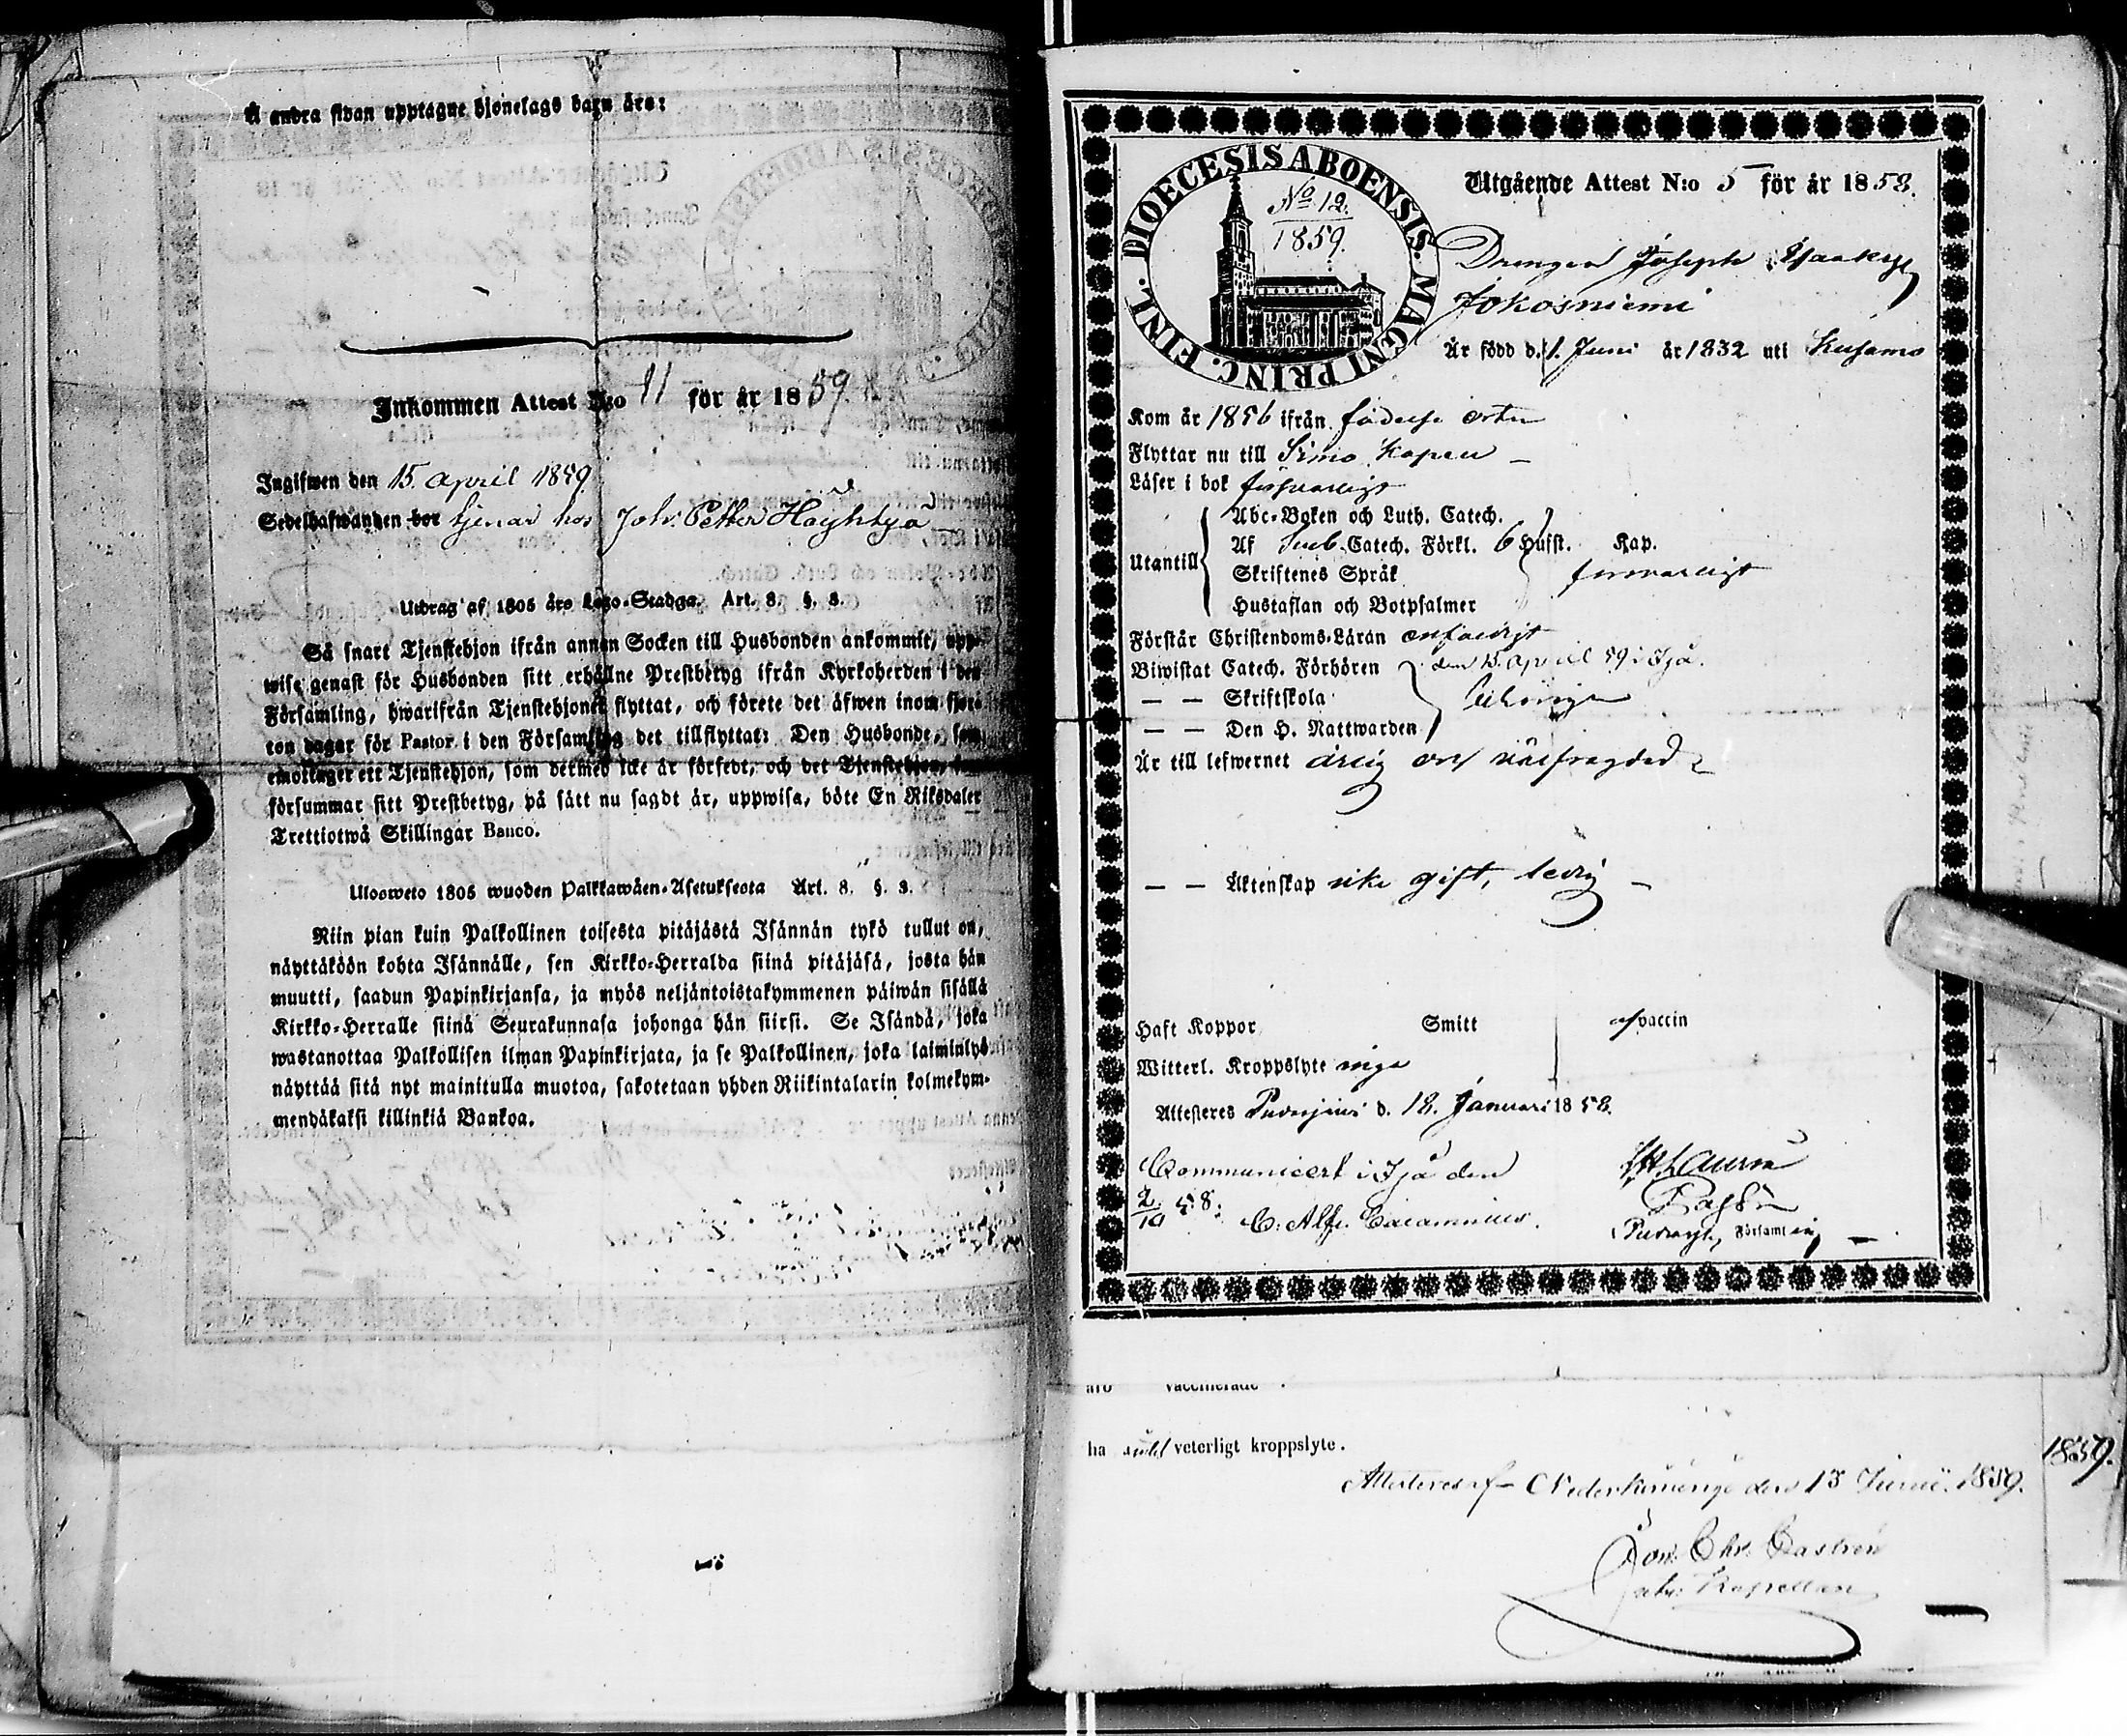 Å andra sidan upptagne hjonelags barn äro:
Inkommen Attest N:o 11 för år 1859.
Ingifwen den 15. april 1859.
Sedelhafwanden bor tjenar hos Joh: Petter Hayhtya
Utdrag af 1805 års Lego-Stadga. Art. 8. §. 3.
Så snart Tjenstehjon ifrån annan Socken till Husbonden ankommit, upp-
wise genast för Husbonden sitt erhållne Prestbetyg ifrån Kyrkoherden i den
Församling, hwarifrån Tjenstehjonet flyttat, och förete det äfwen inom fjor-
ton dagar för Pastor i den Församling det tillflyttat: Den Husbonde, som
emottager ett Tjenstehjon, som dermed icke är försedt, och det Tjenstehjon,
försummar sitt Prestbetyg, på sätt nu sagdt är, uppwisa, böte En Riksdaler
Trettiotwå Skillingar Banco.
Ulosweto 1805 wuoden Palkkawäen-Asetuksesta Art. 8. §. 3.
Niin pian kuin Palkollinen toisesta pitäjästä Isännän tykö tullut on,
näyttäköön kohta Isännälle, sen Kirkko-Herralda siinä pitäjäsä, josta hän
muutti, saadun Papinkirjansa, ja myös neljäntoistakymmenen päiwän sisällä
Kirkko-Herralle siinä Seurakunnasa johonga hän siirsi. Se Isändä, joka
wastanottaa Palkollisen ilman Papinkirjata, ja se Palkollinen, joka laiminlyö
näyttää sitä nyt mainitulla muotoa, sakotetaan yhden Riikintalarin kolmekym-
mendäkaksi killinkiä Bankoa.
DIOECESIS ABOENSIS. MAGNI PRINC. FINL.
No 12.
1859.
Utgående Attest N:o 5 för år 1858.
Drengen Joseph
Jokosniemi
Är född d. 1. Juni år 1832 uti Kusamo
Kom år 1856 ifrån födelse orten
Flyttar nu till Simo Kapell
Läser i bok försvarligt
Utantill
Abc-Boken och Luth. Catech.
Af Sveb. Catech. Förkl. 6 Hufst. Kap.
Skriftenes Språk försvarligt
Hustaflan och Botpsalmer
Förstår Christendoms-Läran enfaldigt
Biwistat Catech. Förhören den 15. April 59 i Ijå.
— — Skriftskola
— — Den H. Nattwarden
Är till lefwernet ärlig och välfrägdad
— — Äktenskap icke gift, ledig
Haft Koppor Smitt af vaccin
Witterl. Kroppslyte inga
Attesteres Pudasjärvi d. 18. Januari 1858.
Communicert i Ijå den
2/10 58:
Församling
äro vaccinerade.
ha intet veterligt kroppslyte.
Attesteres af Nederkiminge den 13 Junii 1859.
Chr. Castrén
Kapellan
1859.